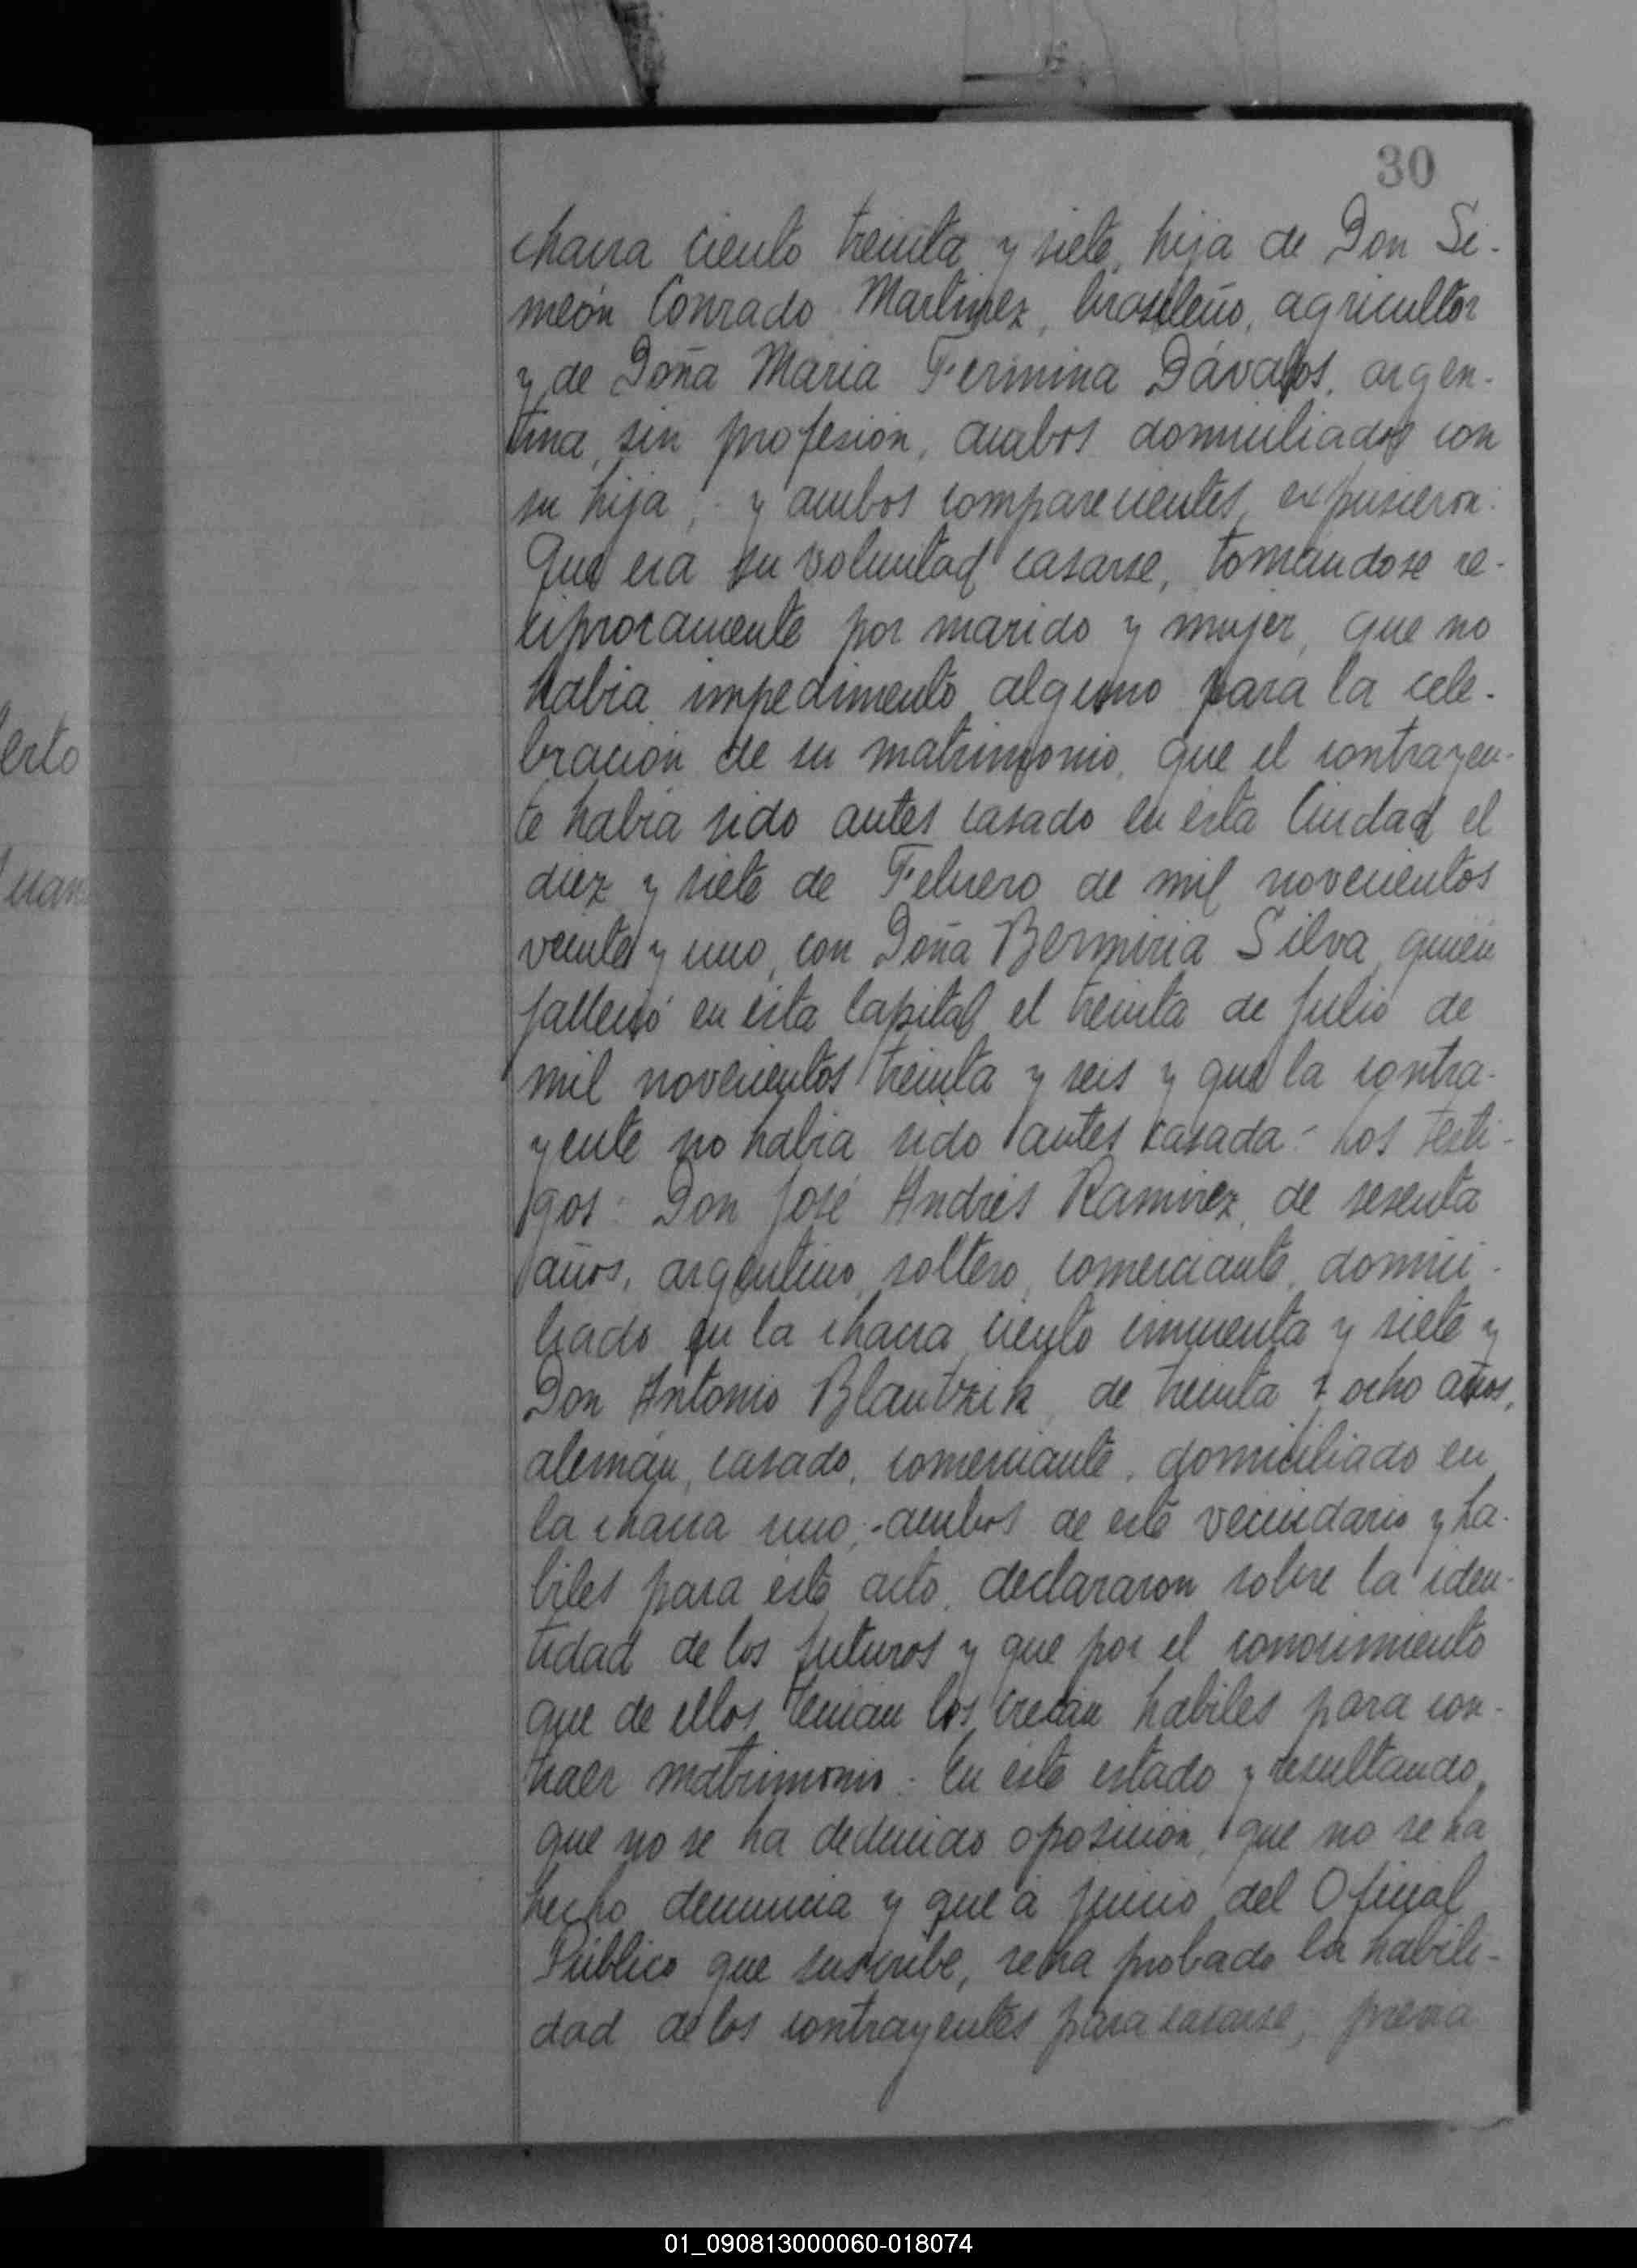 30
chacra ciento treinta y siete, hija de Don Si-
meón Conrado Martinez, brasileño, agricultor
y de Doña Maria Fermina Dávalos, argen-
tina, sin profesión, ambos domiciliados con
su hija; - y ambos comparecientes, expusieron:
Que era su voluntad casarse, tomándose re-
ciprocamente por marido y mujer, que no
habia impedimento alguno para la cele-
bración de su matrimonio, que el contrayen-
te habia sido antes casado en ésta Ciudad el
diez y siete de Febrero de mil novecientos
veinte y uno, con Doña Bermiria Silva, quién
falleció en ésta Capital el treinta de Julio de
mil novecientos treinta y seis y que la contra-
yente no habia sido antes casada - Los testi-
gos: Don José Andrés Ramirez, de sesenta
años, argentino, soltero, comerciante, domici-
liado en la chacra ciento cincuenta y siete y
Don Antonio Blautzik, de treinta y ocho años,
alemán, casado, comerciante, domiciliado en
la chacra uno; - ambos de este vecindario y ha-
biles para éste acto, declararon sobre la iden-
tidad de los futuros y que por el conocimiento
que de ellos tenian los creian habiles para con-
traer matrimonio. En éste estado y resultando,
que no se ha deducido oposición, que no se ha
hecho denuncia y que á juicio del Oficial
Público que suscribe, se ha probado la habili-
dad de los contrayentes para casarse, previa
erto
uan
01_090813000060-018074